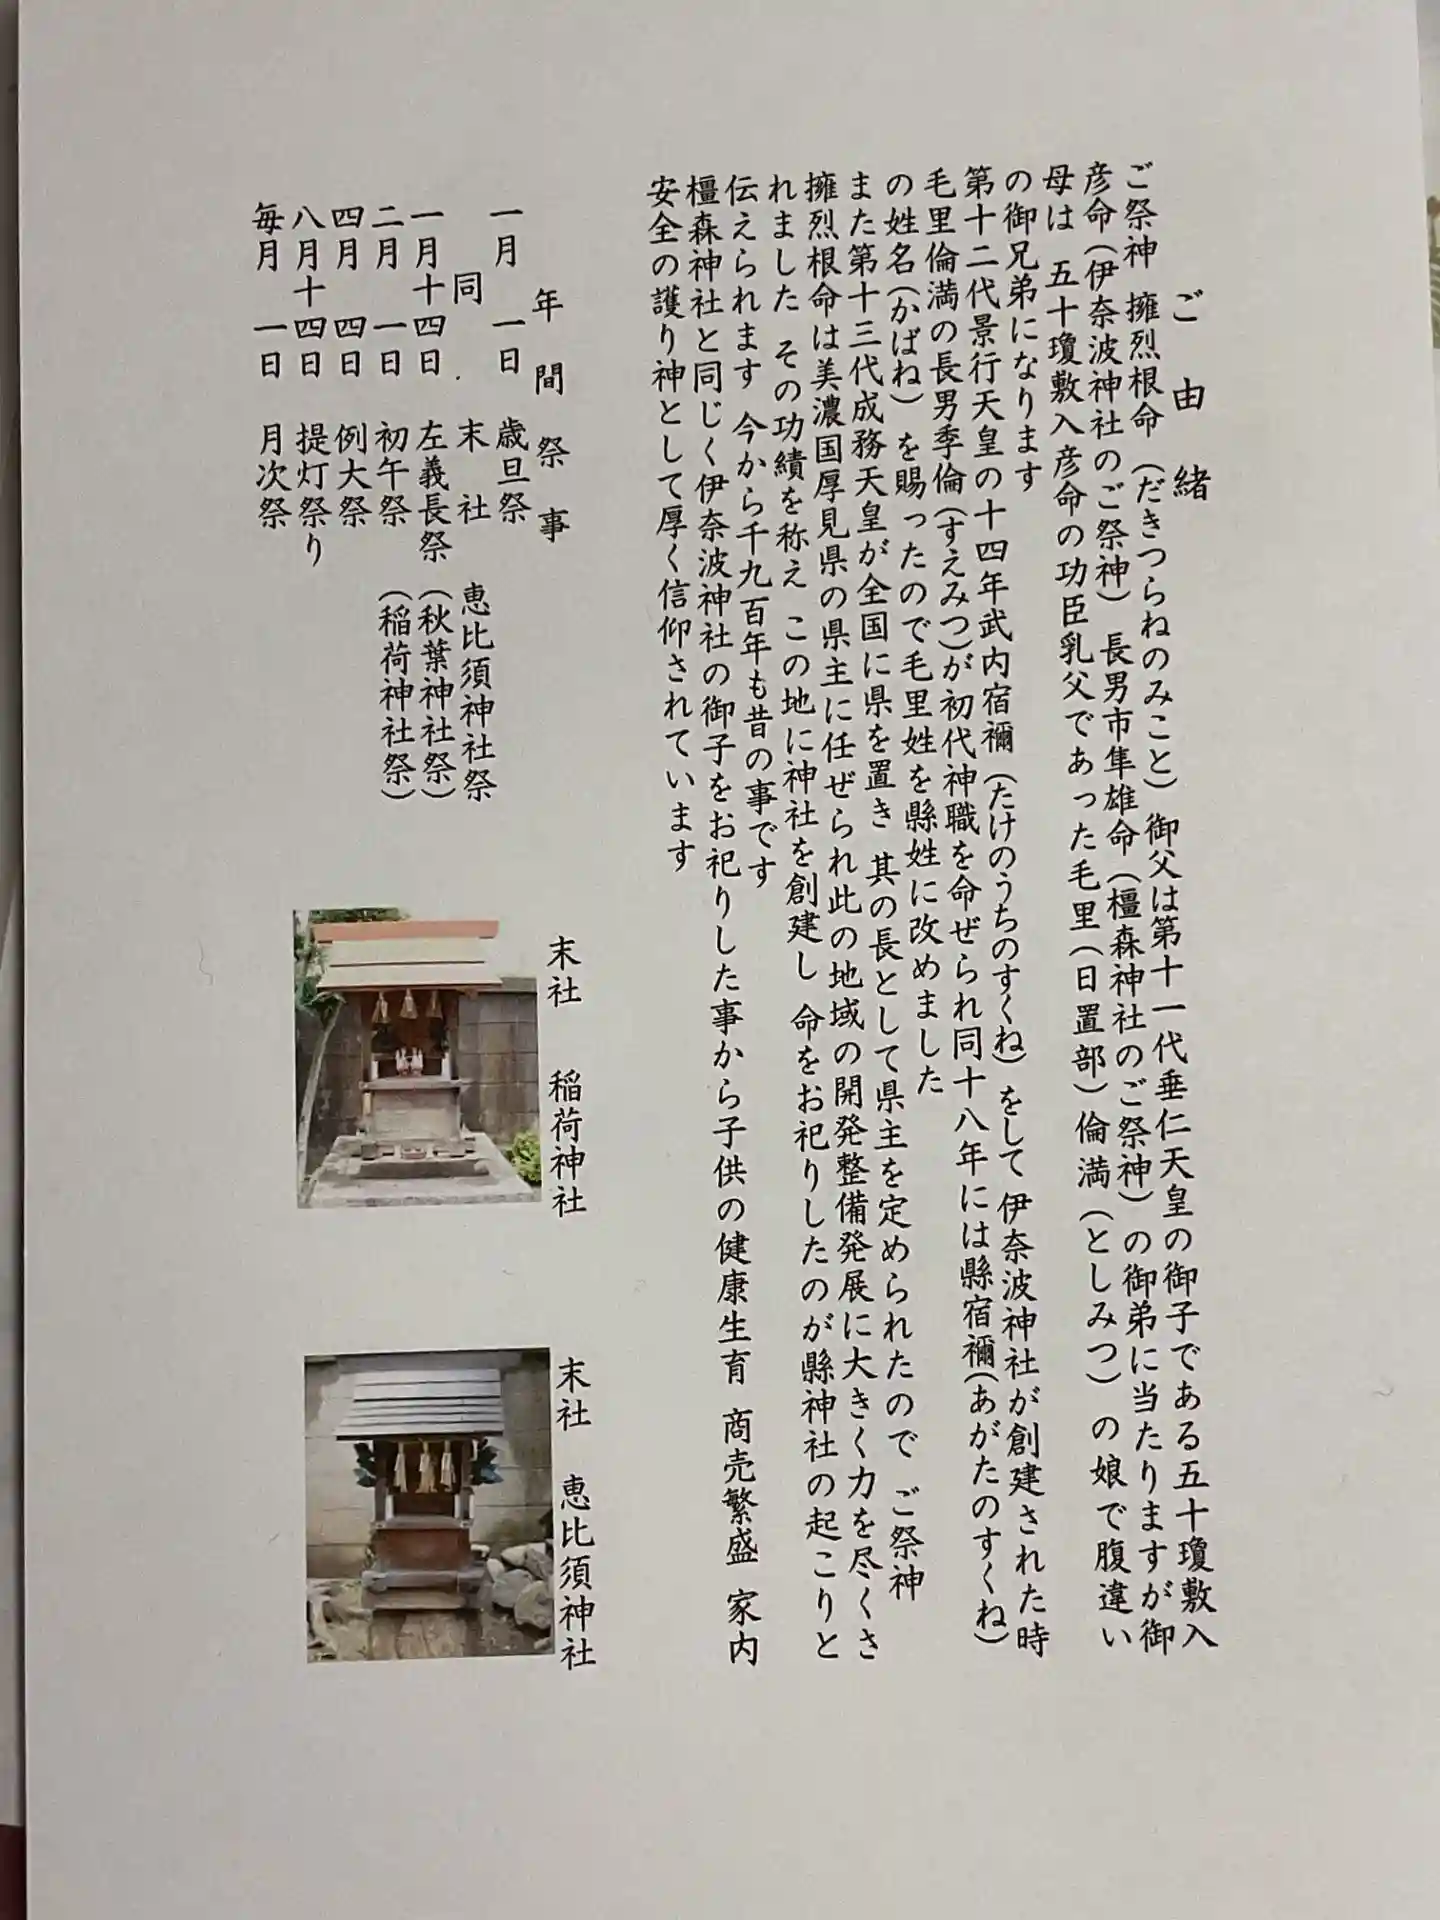 ご由緒
ご祭神 擁烈根命 (だきつらねのみこと) 御父は第十一代垂仁天皇の御子である五十瓊敷入
彦命(伊奈波神社のご祭神) 長男市隼雄命(橿森神社のご祭神)の御弟に当たりますが御
母は 五十瓊敷入彦命の功臣乳父であった毛里(日置部)倫満(としみつ)の娘で腹違い
の御兄弟になります
第十二代景行天皇の十四年武内宿禰 (たけのうちのすくね) をして 伊奈波神社が創建された時
毛里倫満の長男季倫(すえみつ)が初代神職を命ぜられ同十八年には縣宿禰(あがたのすくね)
の姓名(かばね) を賜ったので毛里姓を縣姓に改めました
また第十三代成務天皇が全国に県を置き 其の長として県主を定められたので ご祭神
擁烈根命は美濃国厚見県の県主に任ぜられ此の地域の開発整備発展に大きく力を尽くさ
れました その功績を称え この地に神社を創建し 命をお祀りしたのが縣神社の起こりと
伝えられます 今から千九百年も昔の事です
橿森神社と同じく伊奈波神社の御子をお祀りした事から子供の健康生育 商売繁盛 家内
安全の護り神として厚く信仰されています
年間祭事
一月 一日 歳旦祭
同 末社 恵比須神社祭
一月十四日 左義長祭 (秋葉神社祭)
二月 一日 初午祭 (稲荷神社祭)
四月 四日 例大祭
八月十四日 提灯祭り
毎月 一日 月次祭
末社 稲荷神社
末社 恵比須神社